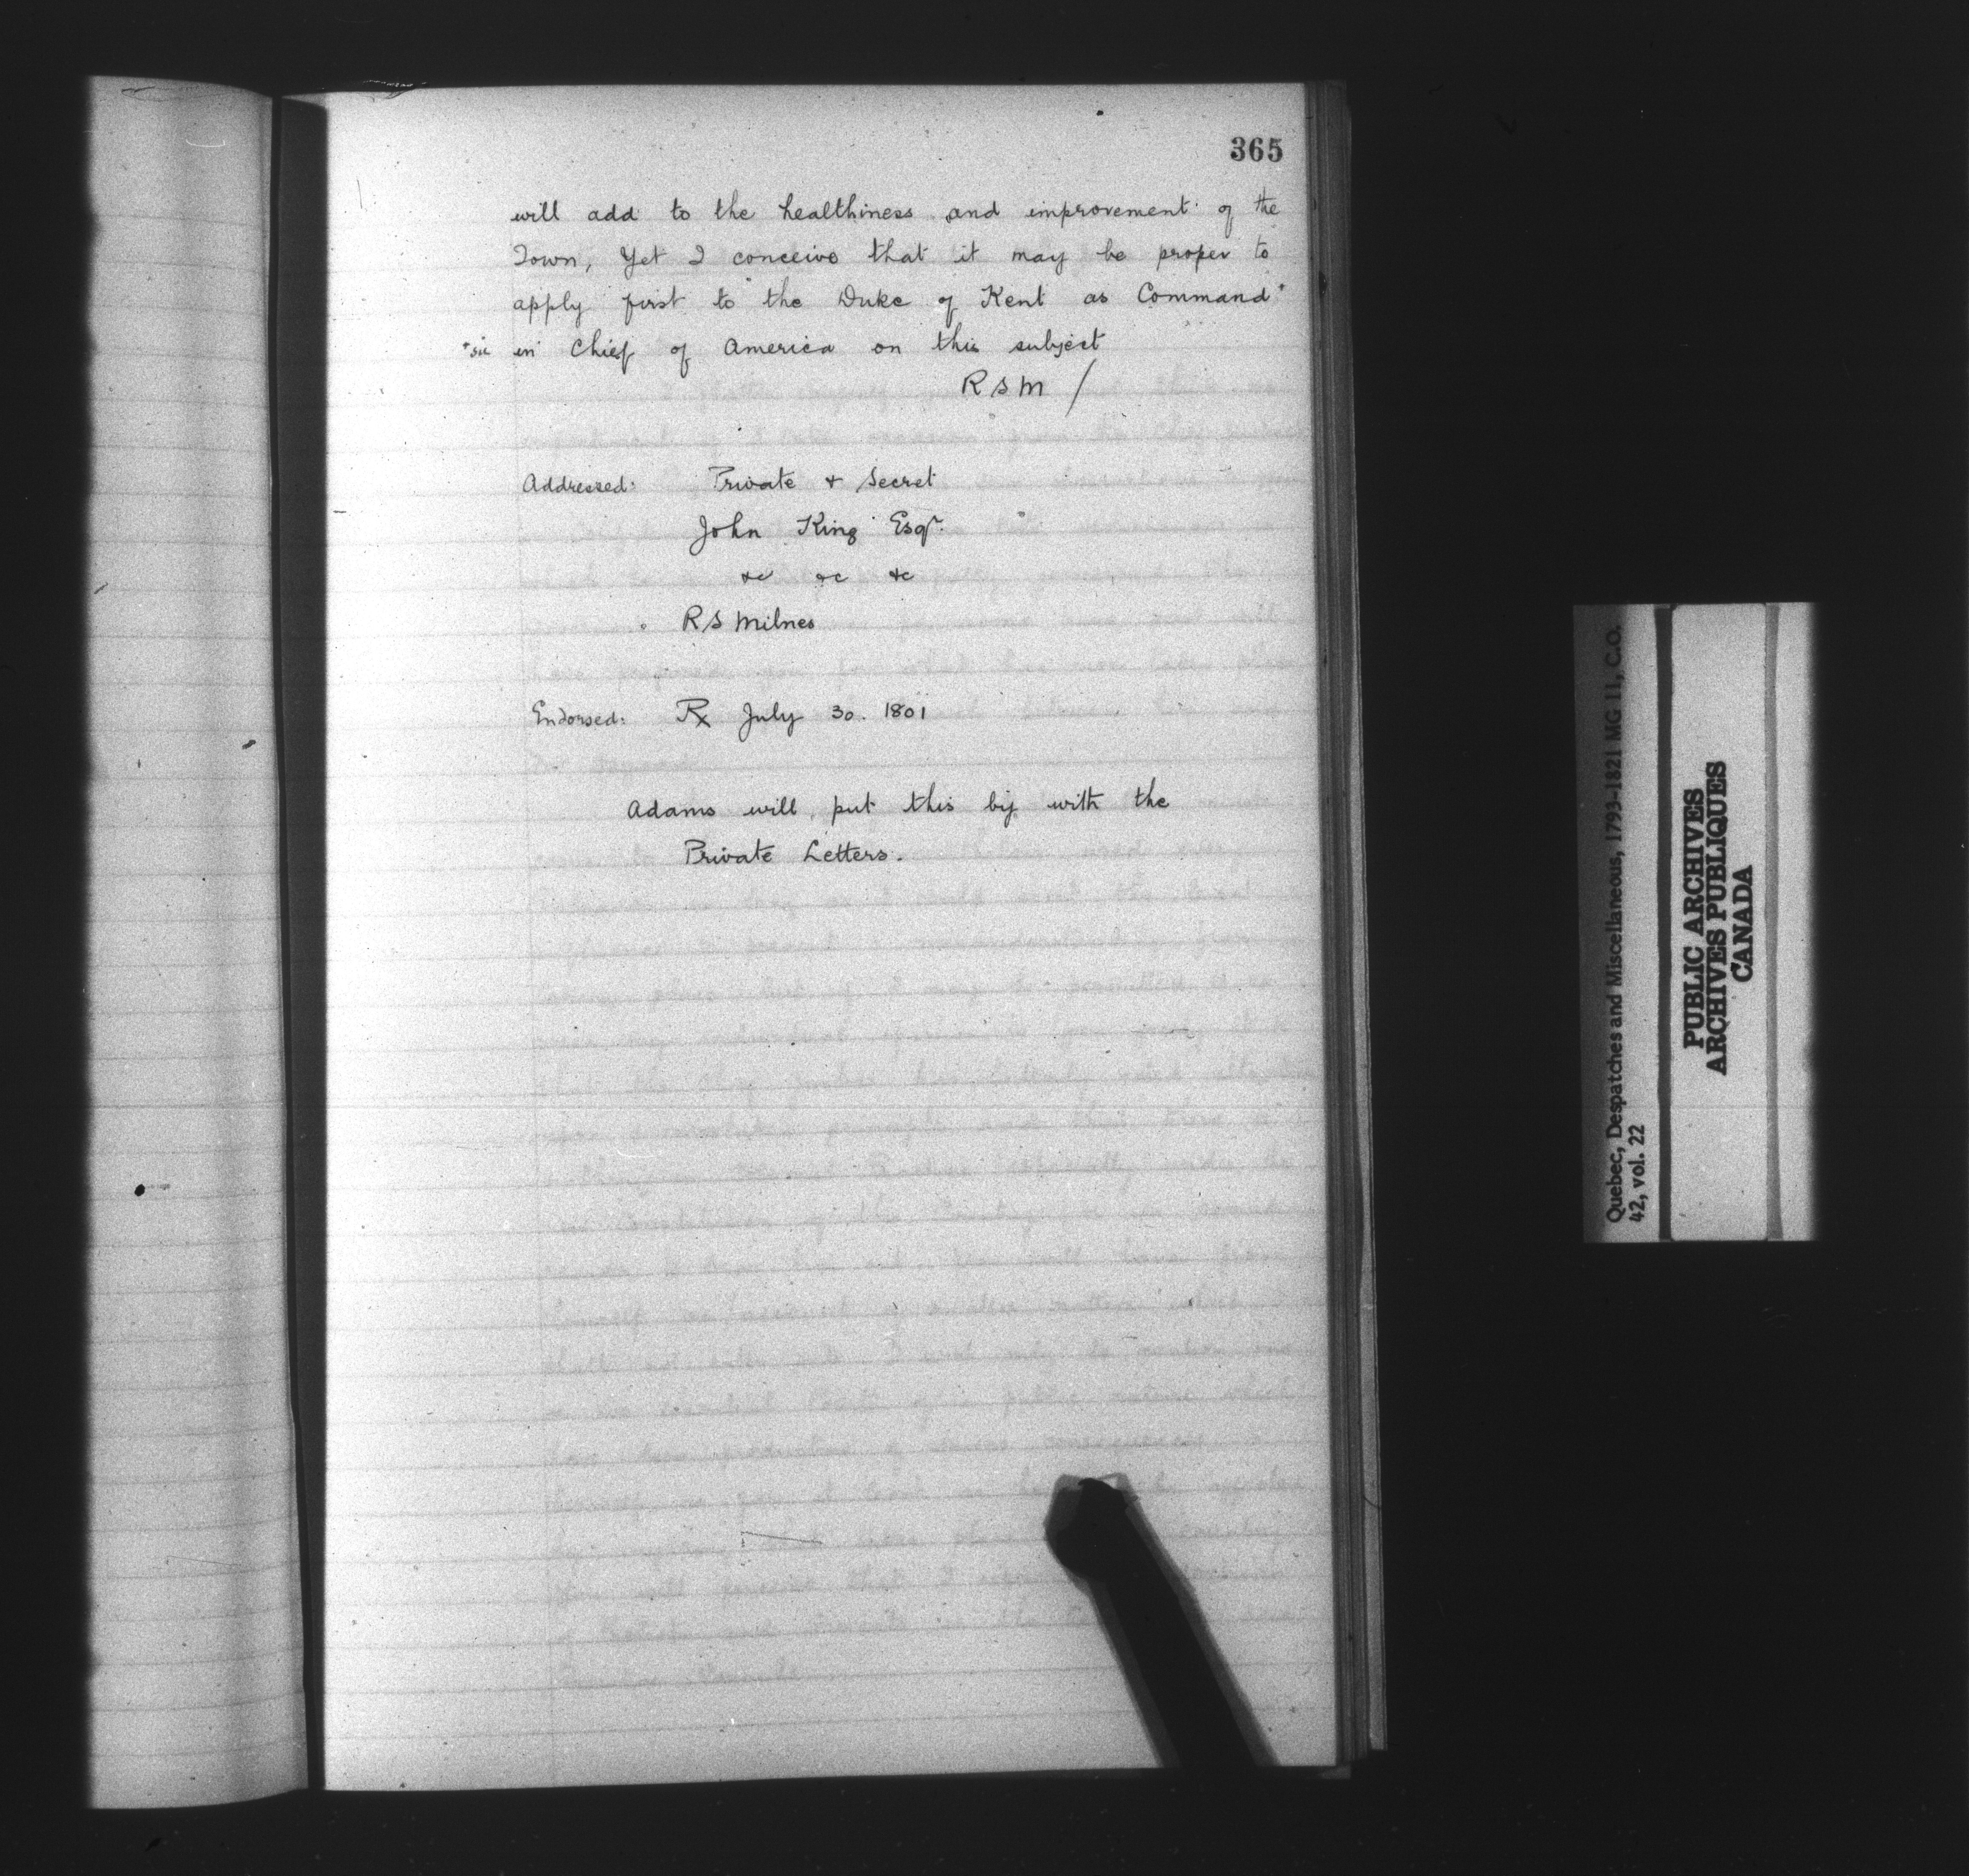 365
will add to the healthiness and improvement of the
Town, Yet I conceive that it may be proper to
apply first to the Duke of Kent as Command+
+sic in Chief of America on this subject
R S M /
Addressed: Private + Secret
John King Esqr.
&c &c &c
R S Milnes
Endorsed: Rx July 30. 1801
Adams will put this by with the
Private Letters.
Quebec, Despatches and Miscellaneous, 1793-1821 MG 11, C.O.
42, vol. 22
PUBLIC ARCHIVES
ARCHIVES PUBLIQUES
CANADA